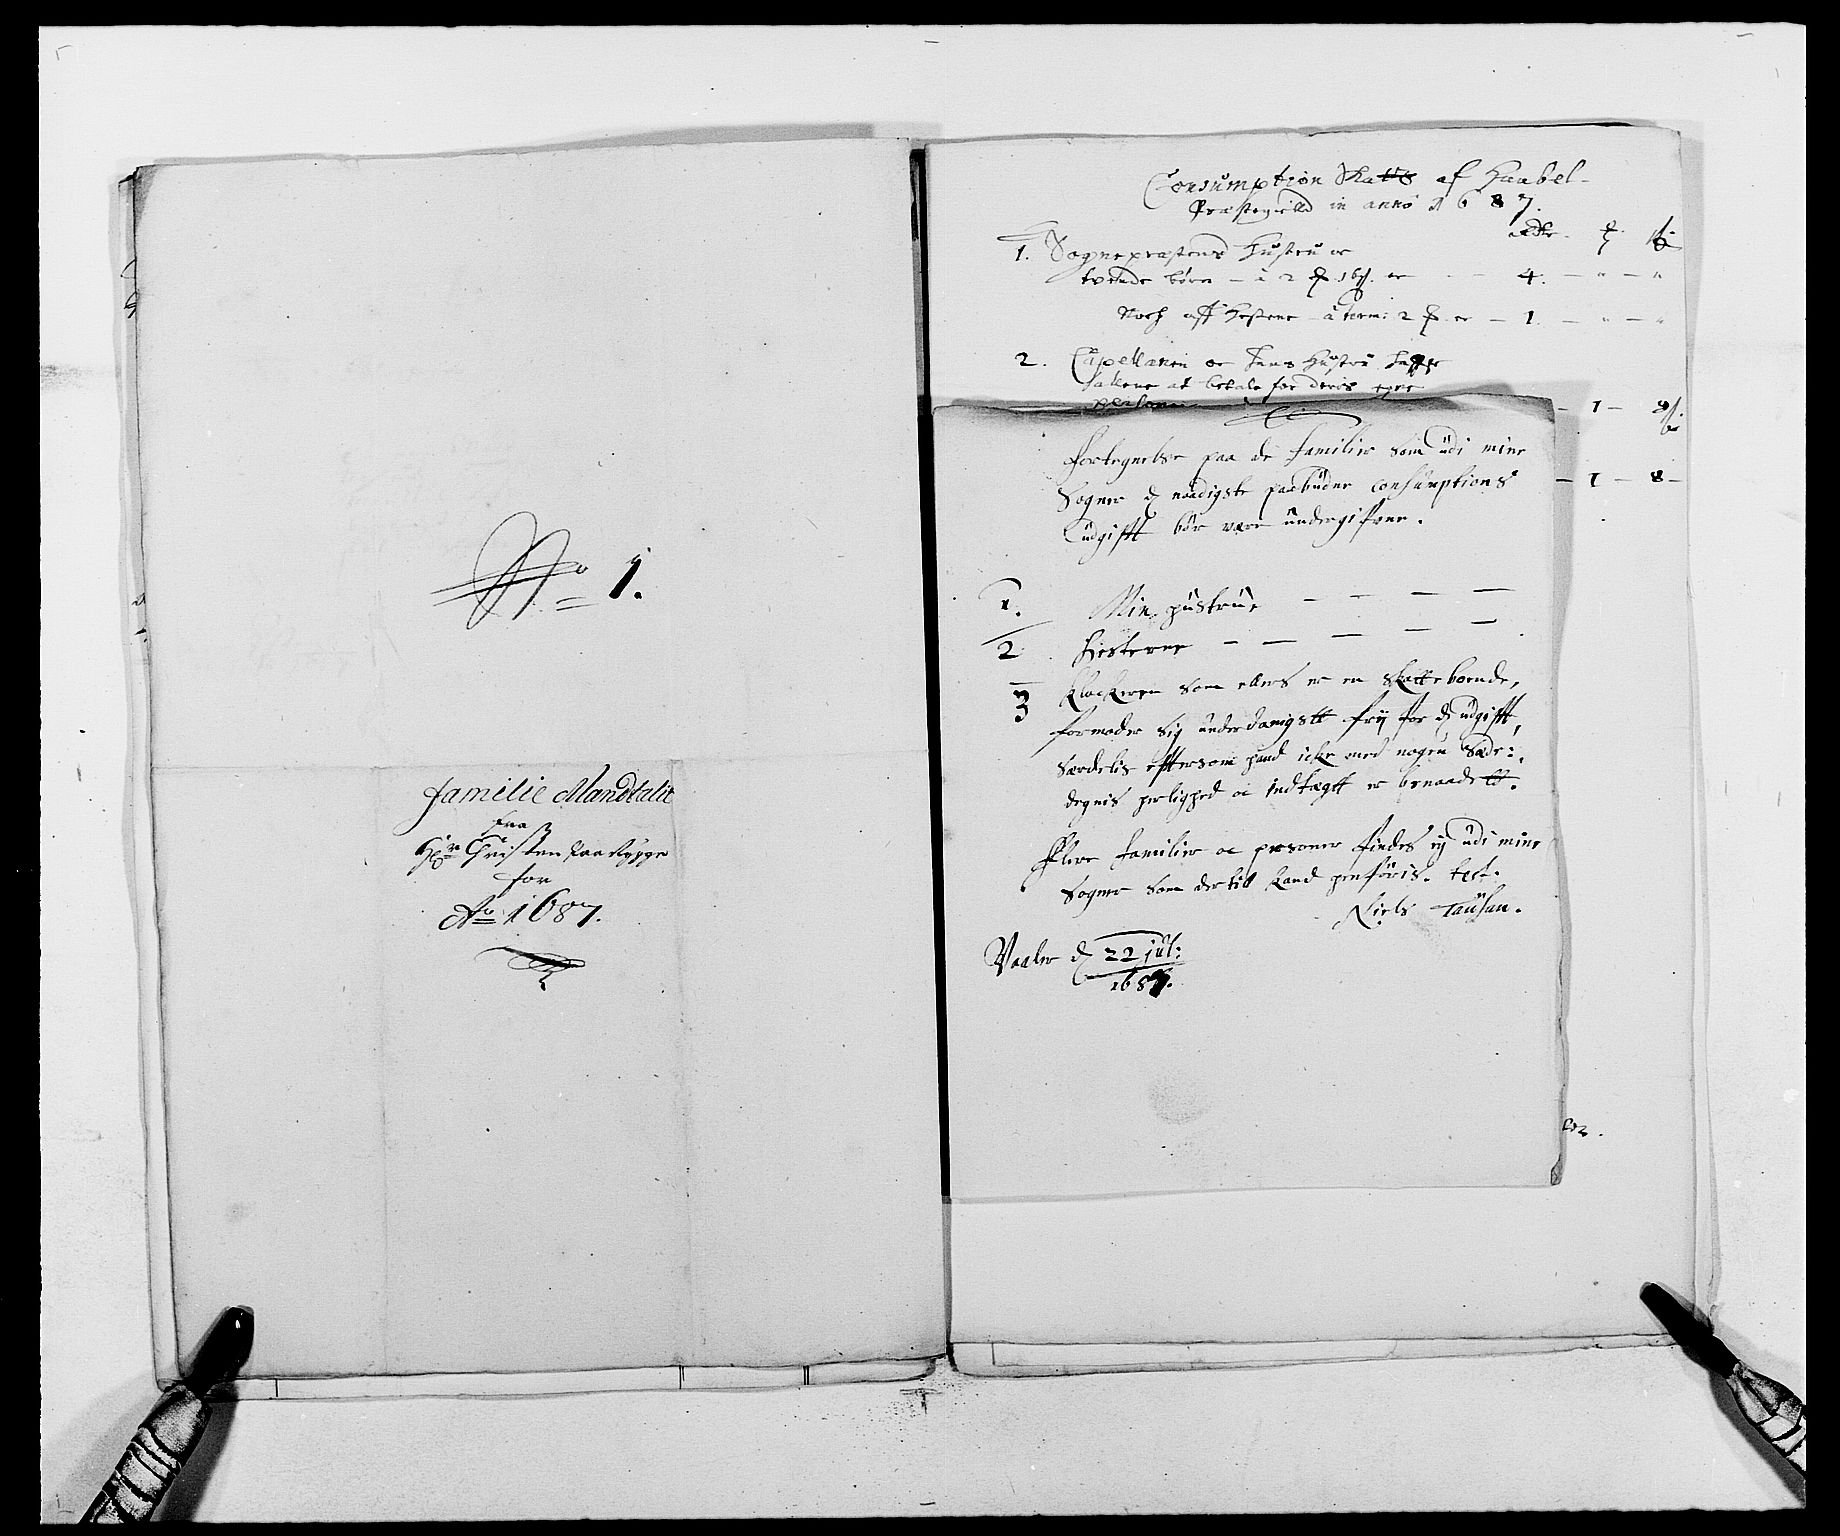 No 1.
Familie Mandtalit
fraa
Hr Christen paa Rygge
for
Ao 1687.
Consumption Skatt af Haabel-
Præstegield in anno 1687.
1. Sognepræstens Hustru oc
tvende børn - à 2 16 s. er - - 4. - " - "
Noch aff Hestene - à term: 2 er - 1. - " - "
2. Capellanen oc hans Hustru
at betale for deris egne
- 1 - 8
- 1 - 8 -
Fortegnelse paa de familier som udi mine
Sogner d naadigste paabudne Consumptions
udgifft bør være undergifven.
1. Min hustrue - - - -
2. Hesterne - - - - -
3 Klockeren som ellers er en skatte boende,
formoder sig underdanigst frij for d udgifft,
særdelis effter som hand icke med nogen Sæde:
degnis herlighed oc indtægt er benaadett.
Flere familier oc personer findes ej udi mine
Sogner som der til kand henføris. test.
Niels Tausan.
Vaaler d 22 jul:
1687.